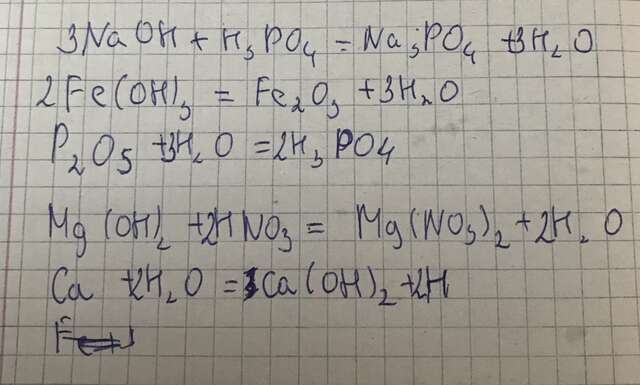 3NaOH + H₃PO₄ = Na₃PO₄ + 3H₂O
2Fe(OH)₃ = Fe₂O₃ + 3H₂O
P₂O₅ + 3H₂O = 2H₃PO₄
Mg(OH)₂ + 2HNO₃ = Mg(NO₃)₂ + 2H₂O
Ca + 2H₂O = Ca(OH)₂ + 2H